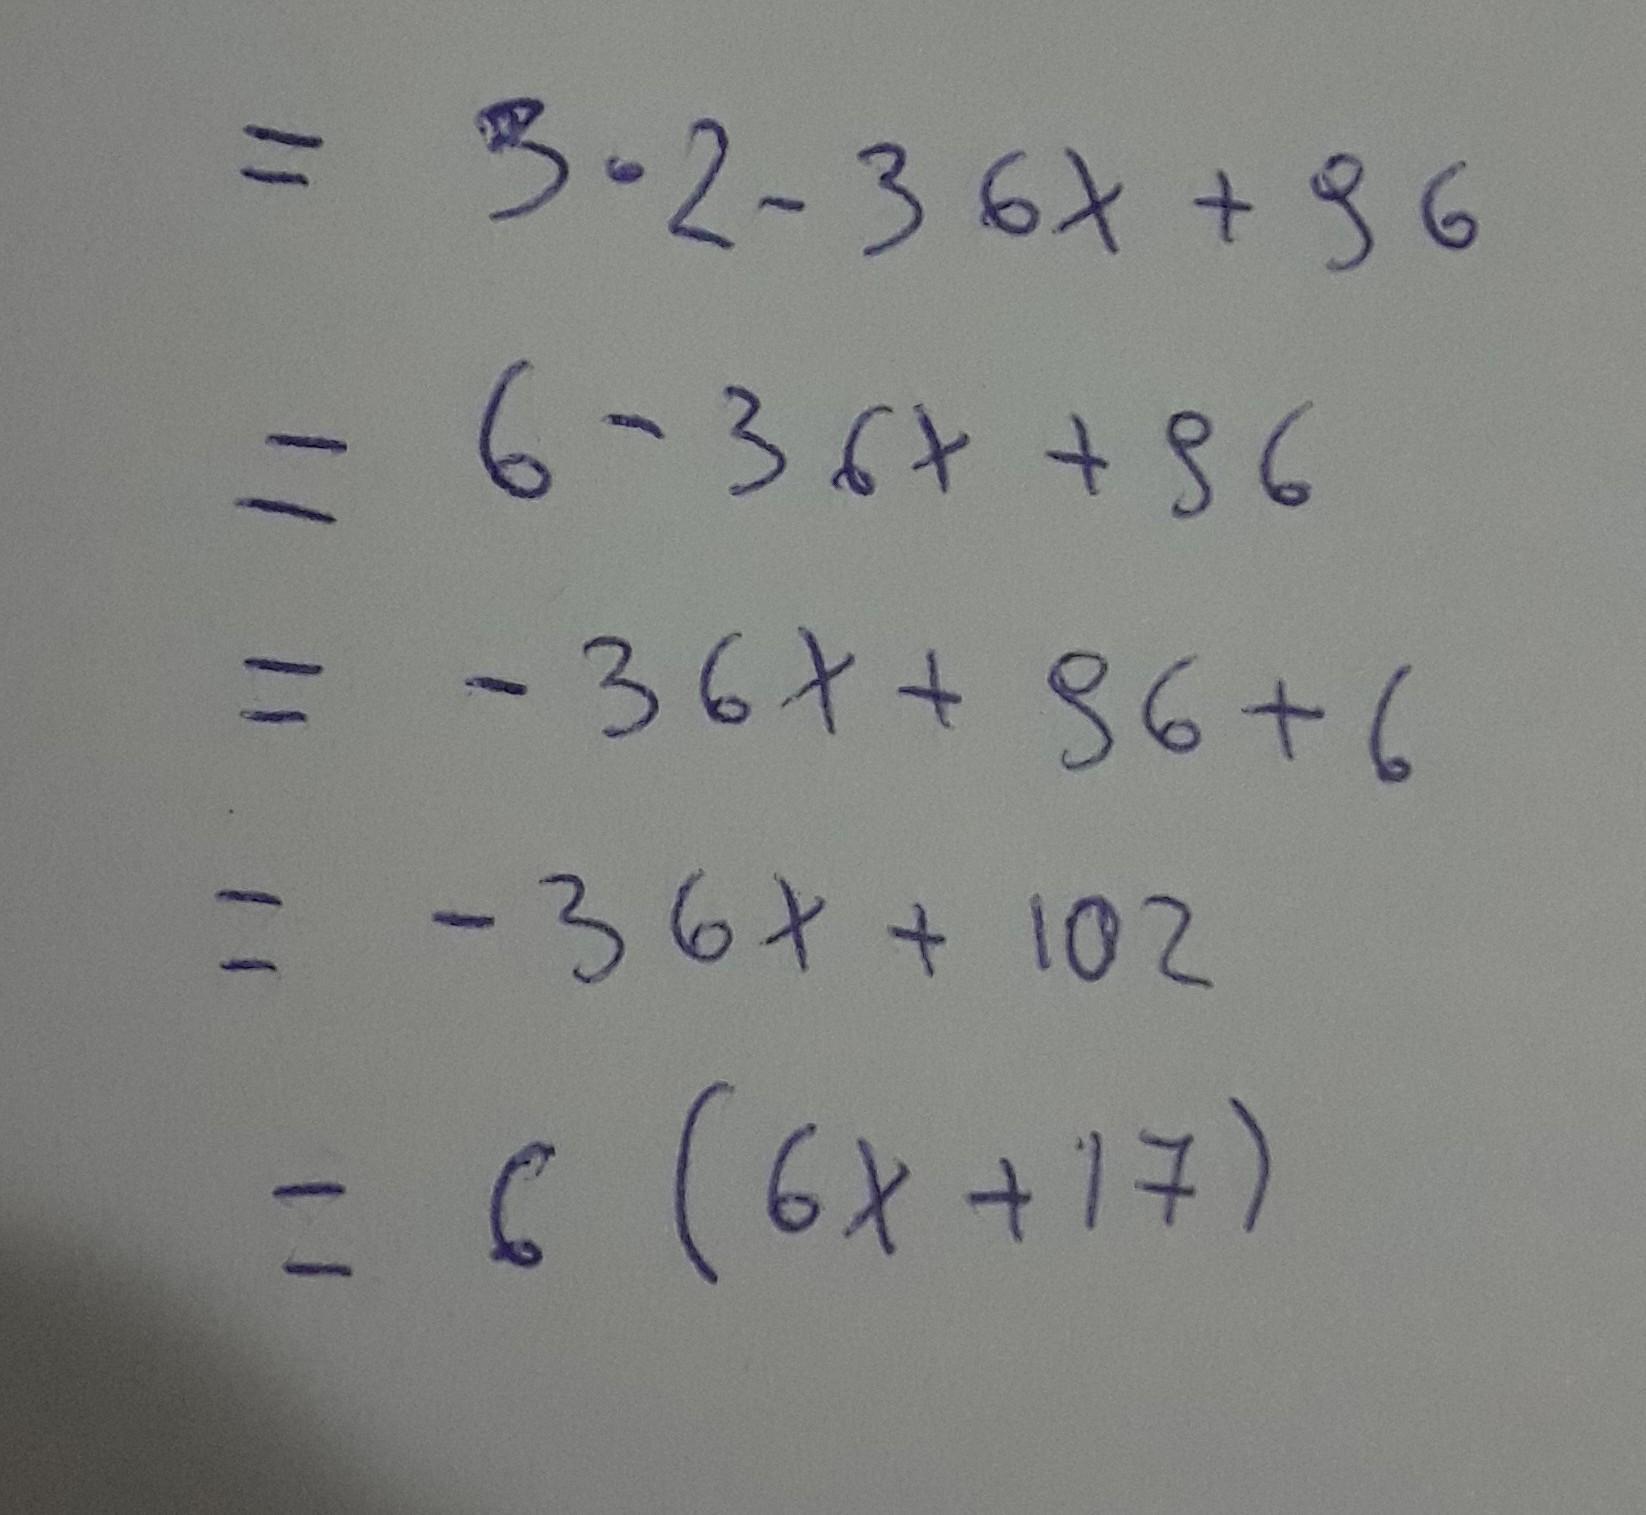 = 3·2-36x+96
= 6-36x+96
= -36x+96+6
= -36x+102
= 6(6x+17)